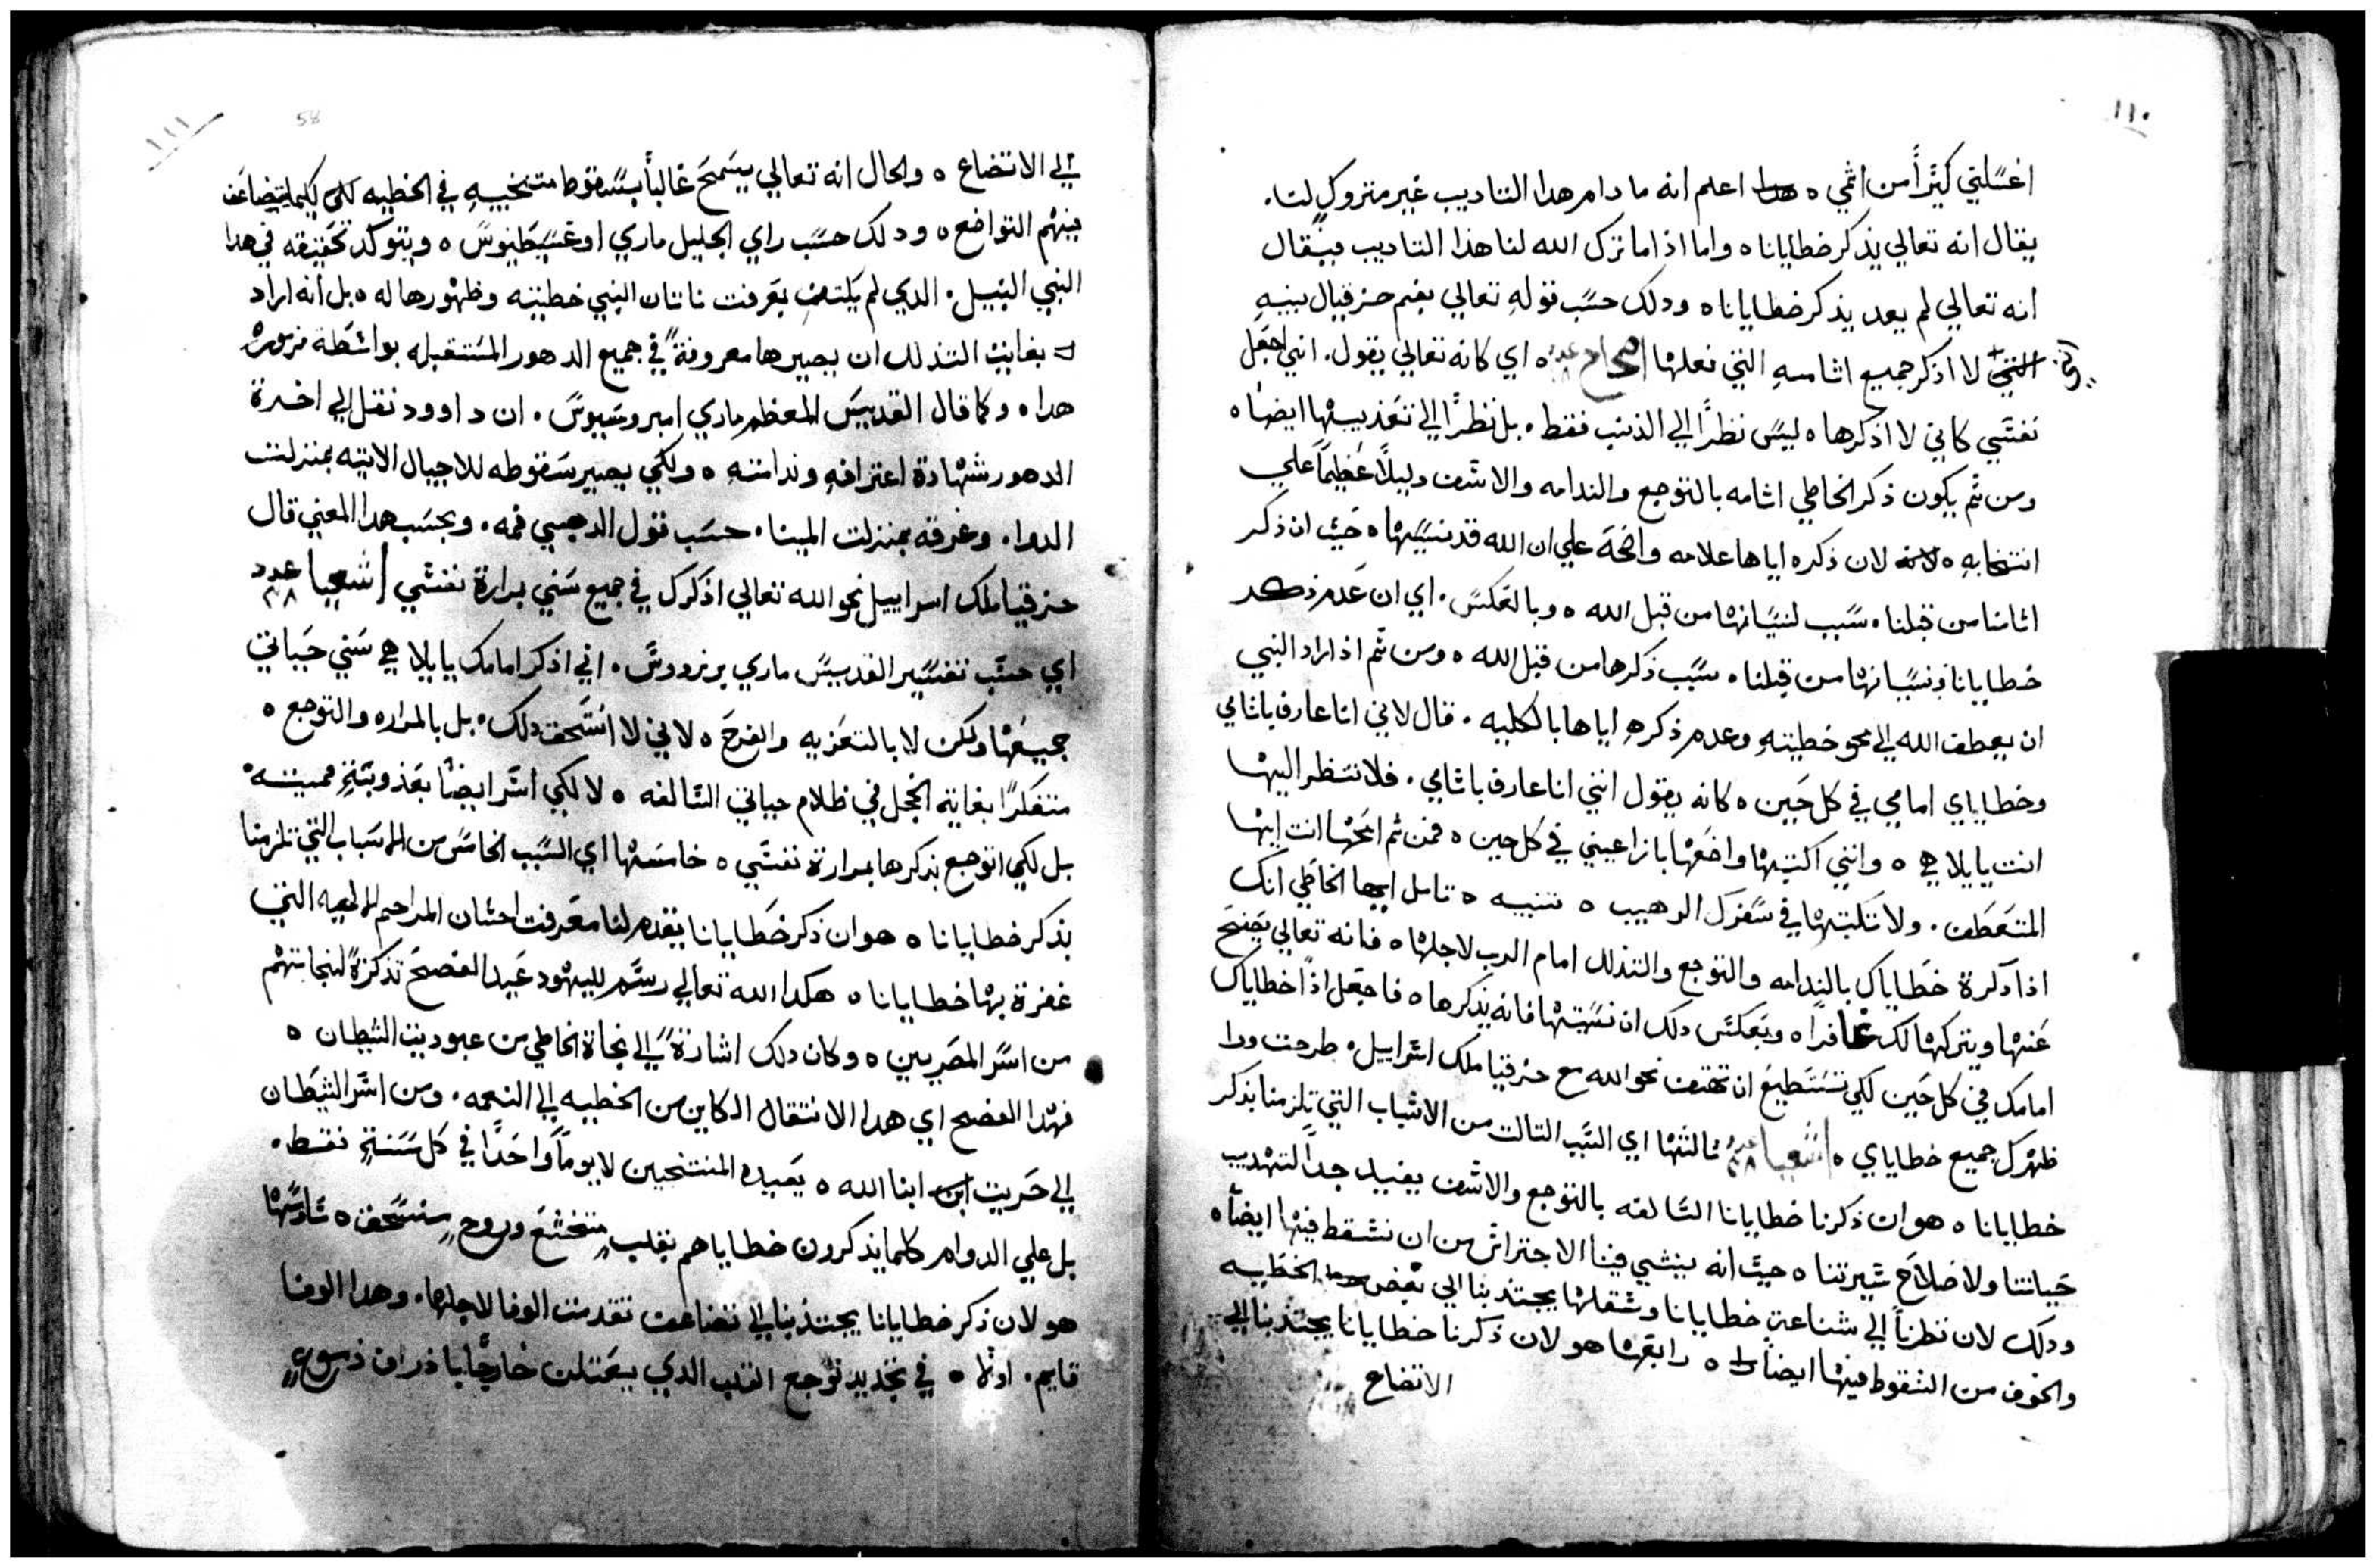 ١١٠
اغسلني كثيرًا من اثمي ه اعلم انه ما دام هدا التاديب غير متروكٍ لنا.
يقال انه تعالي يذكر خطايانا ه واما اذا ما ترك الله لنا هذا التاديب فيقال
انه تعالي لم يعد يذكر خطايانا ه ودلك حسب قولهِ تعالي بفم حزقيال بينهِ
لا اذكر جميع اثامهِ التي فعلها ه اي كانه تعالي يقول. انني اجعل
نفسي كاني لا اذكرها ه ليس نظرًا الي الذنب فقط. بل نظرًا الي تعذيبها ايضًا ه
ومن ثم يكون ذكر الخاطي اثامه بالتوجع والندامه والاسف دليلًا عظيمًا علي
انتخابهِ ه لان ذكره اياها علامه واضحة علي ان الله قد نسيها ه حيث ان ذكر
اثامنا من قبلنا. سبب لنسيانها من قبل الله ه وبالعكس. اي ان عدم ذكر
خطايانا ونسيانها من قبلنا. سبب ذكرها من قبل الله ه ومن ثم اذ اراد النبي
ان يعطف الله الي محو خطيتهِ وعدم ذكرهِ اياها بالكليه. قال لاني انا عارف باثامي
وخطاياي امامي في كل حين ه كانه يقول انني انا عارف باثامي. فلا تنظر اليها
انت يا يلاهي ه وانني اكتبها واضعها بازا عيني في كل حين ه فمن ثم امحها انت ايها
المتعطف. ولا تكتبها في سفرك الرهيب ه تنبيه ه تامل ايها الخاطي انك
اذا ذكرة خطاياك بالندامه والتوجع والتذلل امام الرب لاجلها ه فانه تعالي يصفح
عنها ويتركها لك غافرًا ه وبعكس دلك ان نسيتها فانه يذكرها ه فاجعل اذًا خطاياك
امامك في كل حين لكي تستطيع ان تهتف نحو الله مع حزقيا ملك اسراييل. طرحت ورا
ظهرك جميع خطاياي ه اشعيا عدد ٣٨ ثالثها اي السبب التالت من الاسباب التي تلزمنا بذكر
خطايانا ه هو ان ذكرنا خطايانا السالفه بالتوجع والاسف يفيد جدًا لتهديب
حياتنا ولاصلاح سيرتنا ه حيث انه ينشي فينا الاحتراس من ان نسقط فيها ايضًا ه
ودلك لان نظرنا الي شناعة خطايانا وثقلها يجتذبنا الي بغض الخطيه
والخوف من السقوط فيها ايضًا ه رابعها هو لان ذكرنا خطايانا يجتذبنا الي
الاتضاع
١١١
58
الي الاتضاع ه والحال انه تعالي يسمح غالبًا بسقوط منتخبيهِ في الخطيه لكيما يتضاعف
فيهم التواضع ه ودلك حسب راي الجليل ماري اوغسطينوس ه ويتوكد تحقيقه في هدا
النبي النبيل. الدي لم يكتفِ بمعرفت ناتان النبي خطيته وظهورها له ه بل انه اراد
بغايت التذلل ان يصيرها معروفةً في جميع الدهور المستقبله بواسطة مزموره
هدا ه وكما قال القديس المعظم ماري امبروسيوس. ان داوود نقل الي اخرة
الدهور شهادة اعترافهِ وندامتهِ ه ولكي يصير سقوطه للاجيال الاتيه بمنزلت
الدوا. وغرقه بمنزلت المينا. حسب قول الدهبي فمه. وبحسب هدا المعني قال
حزقيا ملك اسراييل نحو الله تعالي اذكرك في جميع سني بمرارة نفسي اشعيا عدد ٣٨
اي حسب تفسير القديس ماري برنردوس. اني اذكر امامك يا يلاهي سني حياتي
جميعها ولكن لا بالتعزيه والفرح ه لاني لا استحق دلك. بل بالمراره والتوجع ه
متفكرًا بغاية الخجل في ظلام حياتي السالفه ه لا لكي اسر ايضًا بعذوبةٍ مميته
بل لكي اتوجع بذكرها بمرارة نفسي ه خامسها اي السبب الخامس من الاسباب التي تلزمنا
بذكر خطايانا ه هو ان ذكر خطايانا يقدم لنا معرفت احسان المراحم الالهيه التي
غفرة بها خطايانا ه هكدا الله تعالي رسم لليهود عيد الفصح تذكرةً لنجاتهم
من اسر المصريين ه وكان دلك اشارةً الي نجاة الخاطي من عبوديت الشيطان ه
فهدا الفصح اي هدا الانتقال الكاين من الخطيه الي النعمه. ومن اسر الشيطان
الي حريت ابنا الله ه يعيده المنتخبين لا يومًا واحدًا في كل سنةٍ فقط.
بل علي الدوام كلما يذكرون خطاياهم بقلبٍ متخشع وروحٍ منسحق ه سادسها
هو لان ذكر خطايانا يجتذبنا الي تضاعف تقدمت الوفا لاجلها. وهدا الوفا
قايم. اولًا ه في تجديد توجع القلب الدي يعتلن خارجًا بادراف دموعٍ